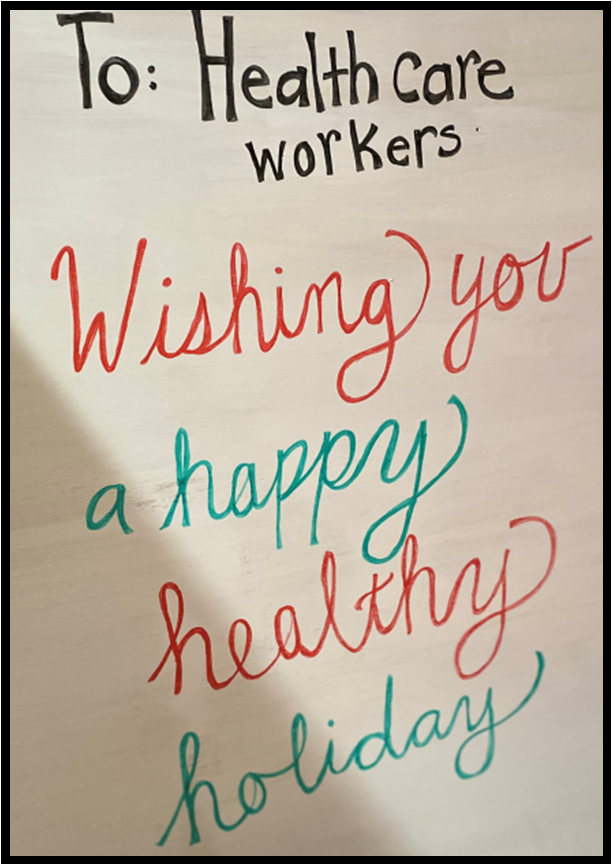 To: Health care
workers
Wishing you
a happy
healthy
holiday